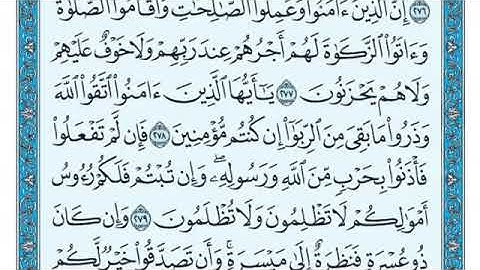 ﴿٢٧٦﴾ إِنَّ ٱلَّذِينَ ءَامَنُوا۟ وَعَمِلُوا۟ ٱلصَّـٰلِحَـٰتِ وَأَقَامُوا۟ ٱلصَّلَوٰةَ
وَءَاتَوُا۟ ٱلزَّكَوٰةَ لَهُمْ أَجْرُهُمْ عِندَ رَبِّهِمْ وَلَا خَوْفٌ عَلَيْهِمْ
وَلَا هُمْ يَحْزَنُونَ ﴿٢٧٧﴾ يَـٰٓأَيُّهَا ٱلَّذِينَ ءَامَنُوا۟ ٱتَّقُوا۟ ٱللَّهَ
وَذَرُوا۟ مَا بَقِىَ مِنَ ٱلرِّبَوٰٓا۟ إِن كُنتُم مُّؤْمِنِينَ ﴿٢٧٨﴾ فَإِن لَّمْ تَفْعَلُوا۟
فَأْذَنُوا۟ بِحَرْبٍ مِّنَ ٱللَّهِ وَرَسُولِهِۦ ۖ وَإِن تُبْتُمْ فَلَكُمْ رُءُوسُ
أَمْوَٰلِكُمْ لَا تَظْلِمُونَ وَلَا تُظْلَمُونَ ﴿٢٧٩﴾ وَإِن كَانَ
ذُو عُسْرَةٍ فَنَظِرَةٌ إِلَىٰ مَيْسَرَةٍ ۚ وَأَن تَصَدَّقُوا۟ خَيْرٌ لَّكُمْ